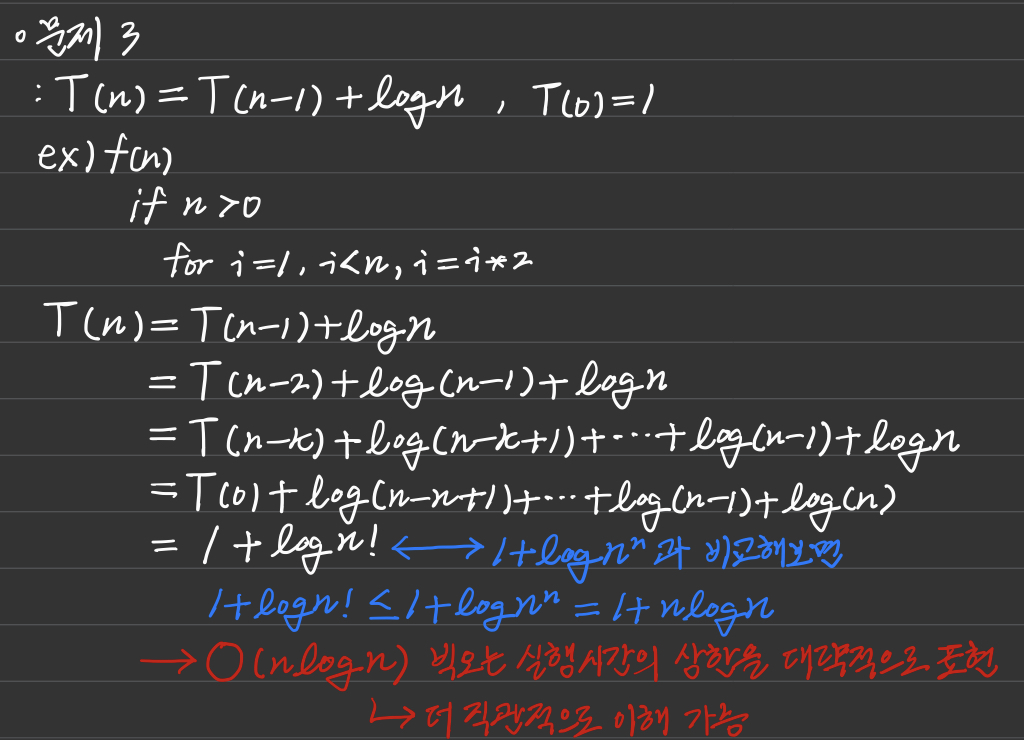 ∘ 문제 3
: T(n) = T(n-1) + logn , T(0) = 1
ex) f(n)
if n >0
for i=1, i<n, i=i*2
T(n) = T(n-1)+logn
= T(n-2)+log(n-1)+logn
= T(n-k)+log(n-k+1)+···+log(n-1)+logn
= T(0)+log(n-n+1)+···+log(n-1)+log(n)
= 1+logn! ↔ 1+lognⁿ과 비교해보면
1+logn! ≤ 1+lognⁿ = 1+nlogn
→ O(nlogn) 빅오는 실행시간의 상한을 대략적으로 표현
↳ 더 직관적으로 이해 가능